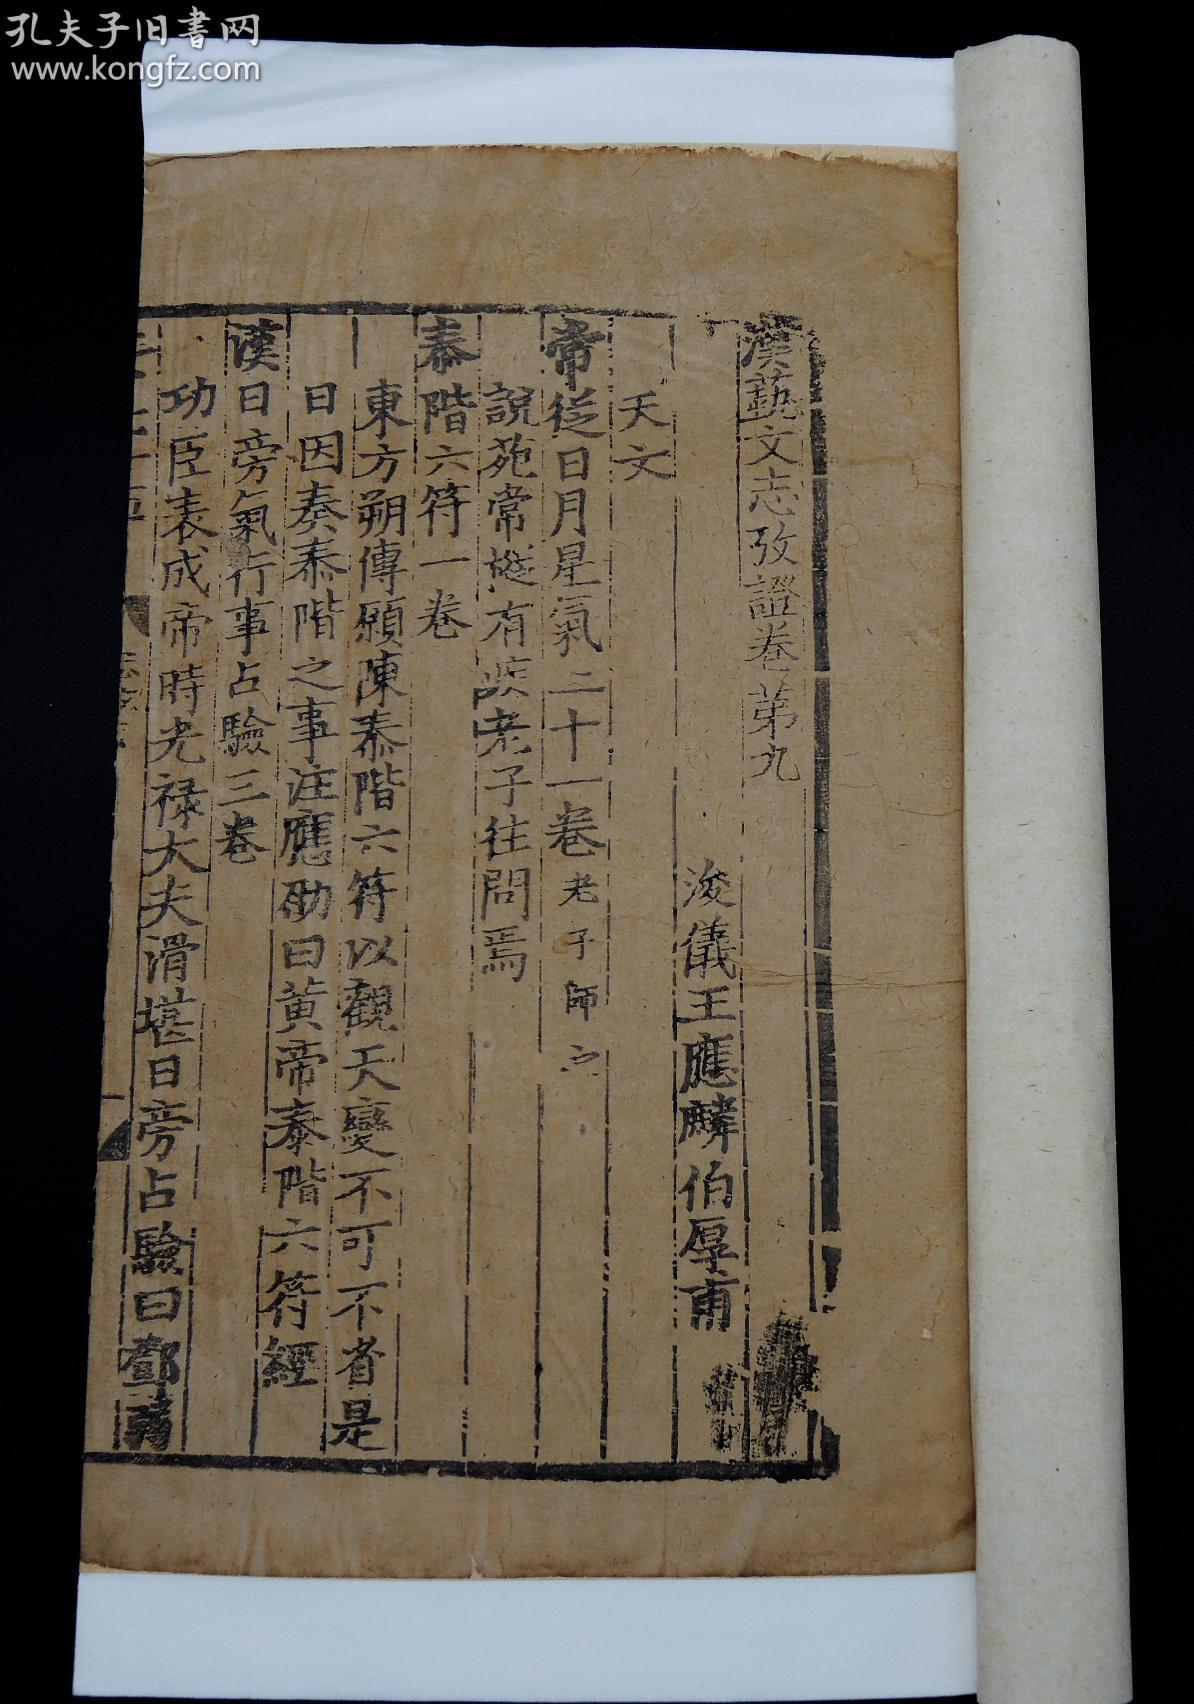 孔夫子旧書网
www.kongfz.com
漢藝文志攷證卷第九
浚儀王應麟伯厚甫
天文
常從日月星氣二十一卷老子師之
說苑常摐有疾老子往問焉
泰階六符一卷
東方朔傳願陳泰階六符以觀天變不可不省是
日因奏泰階之事注應劭曰黃帝泰階六符經
漢日旁氣行事占驗三卷
功臣表成帝時光禄大夫滑堪日旁占驗曰鄧弱